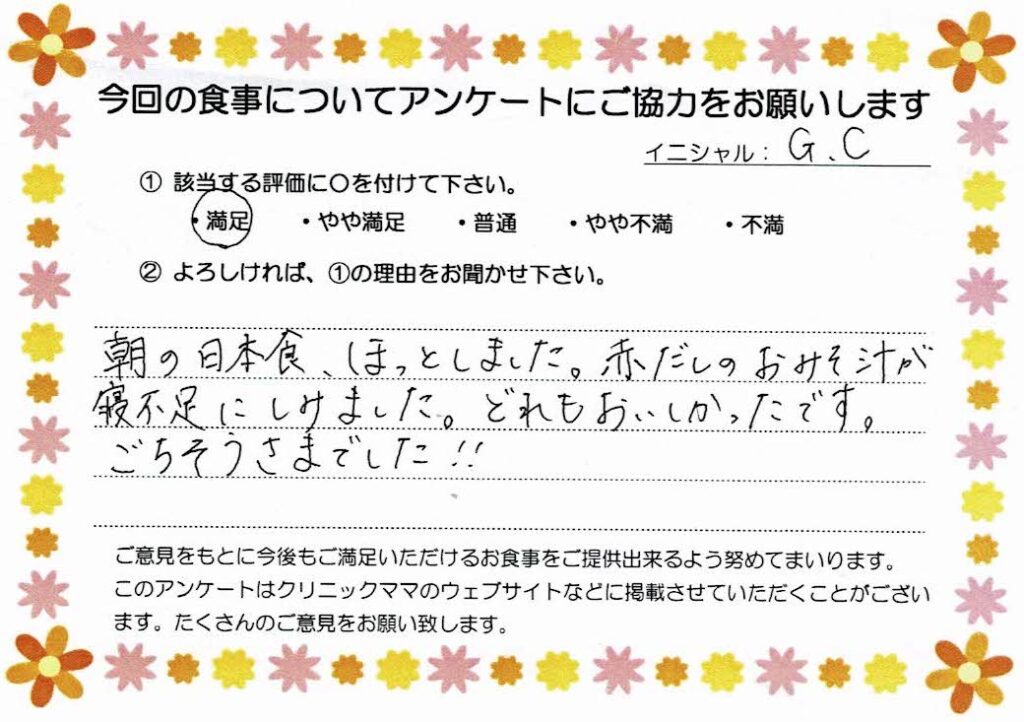 今回の食事についてアンケートにご協力をお願いします
イニシャル： G.C
① 該当する評価に〇を付けて下さい。
・満足 ・やや満足 ・普通 ・やや不満 ・不満
② よろしければ、①の理由をお聞かせ下さい。
朝の日本食、ほっとしました。赤だしのおみそ汁が
寝不足にしみました。どれもおいしかったです。
ごちそうさまでした!!
ご意見をもとに今後もご満足いただけるお食事をご提供出来るよう努めてまいります。
このアンケートはクリニックママのウェブサイトなどに掲載させていただくことがござい
ます。たくさんのご意見をお願い致します。